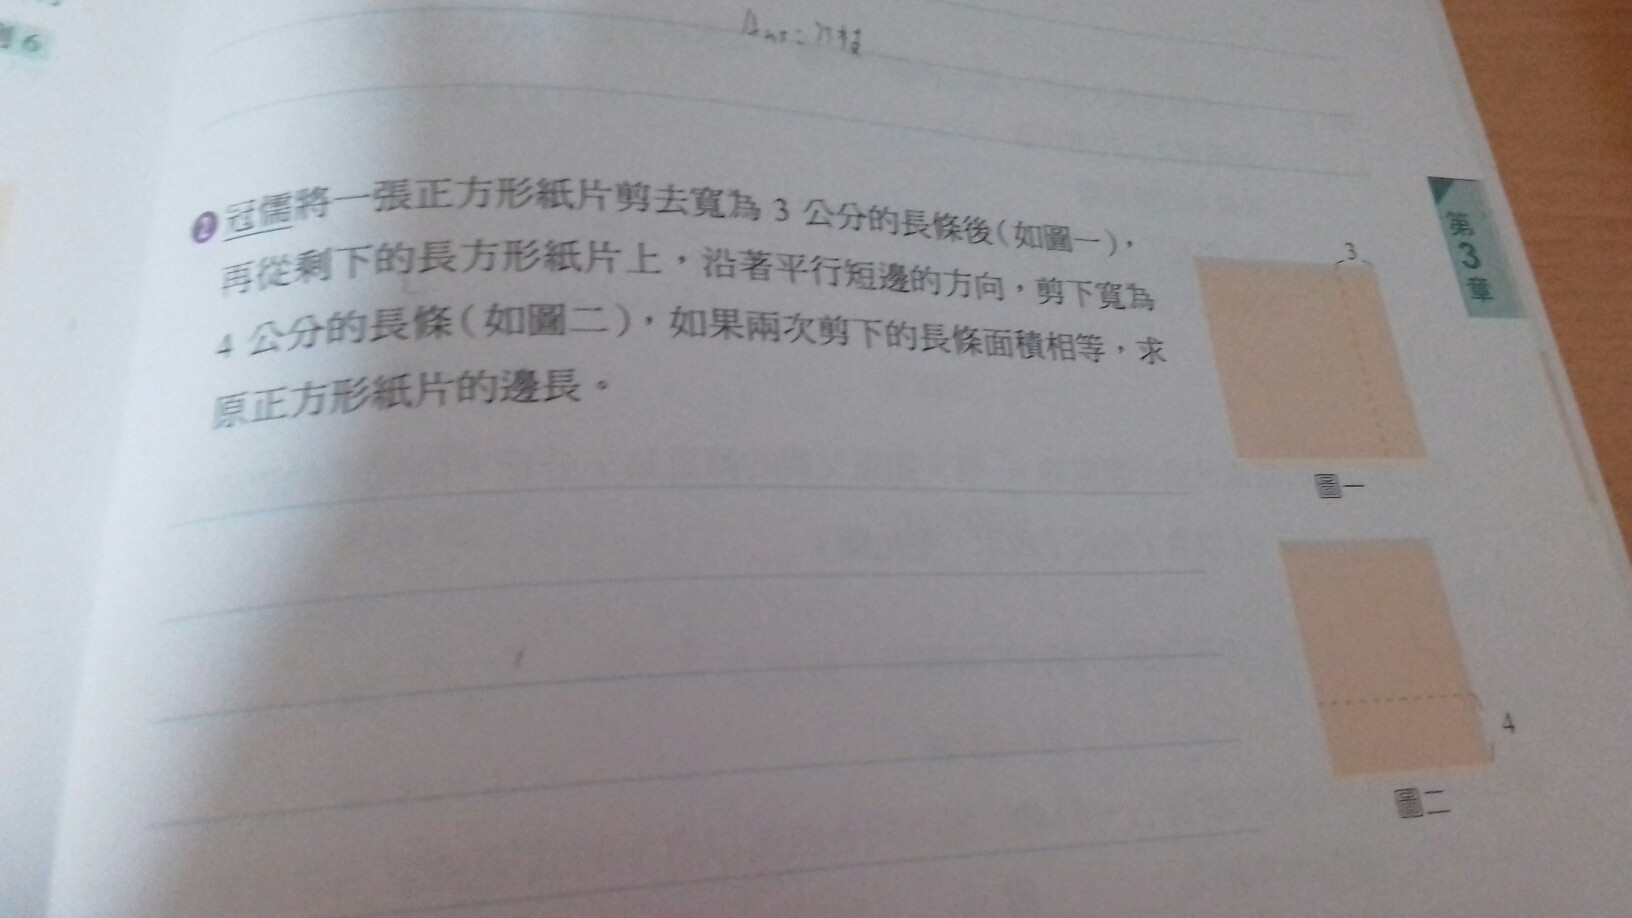 6
Ans=
❷冠儒將一張正方形紙片剪去寬為 3 公分的長條後(如圖一)，
再從剩下的長方形紙片上，沿著平行短邊的方向，剪下寬為
4 公分的長條(如圖二)，如果兩次剪下的長條面積相等，求
原正方形紙片的邊長。
3
圖一
4
圖二
第
3
章